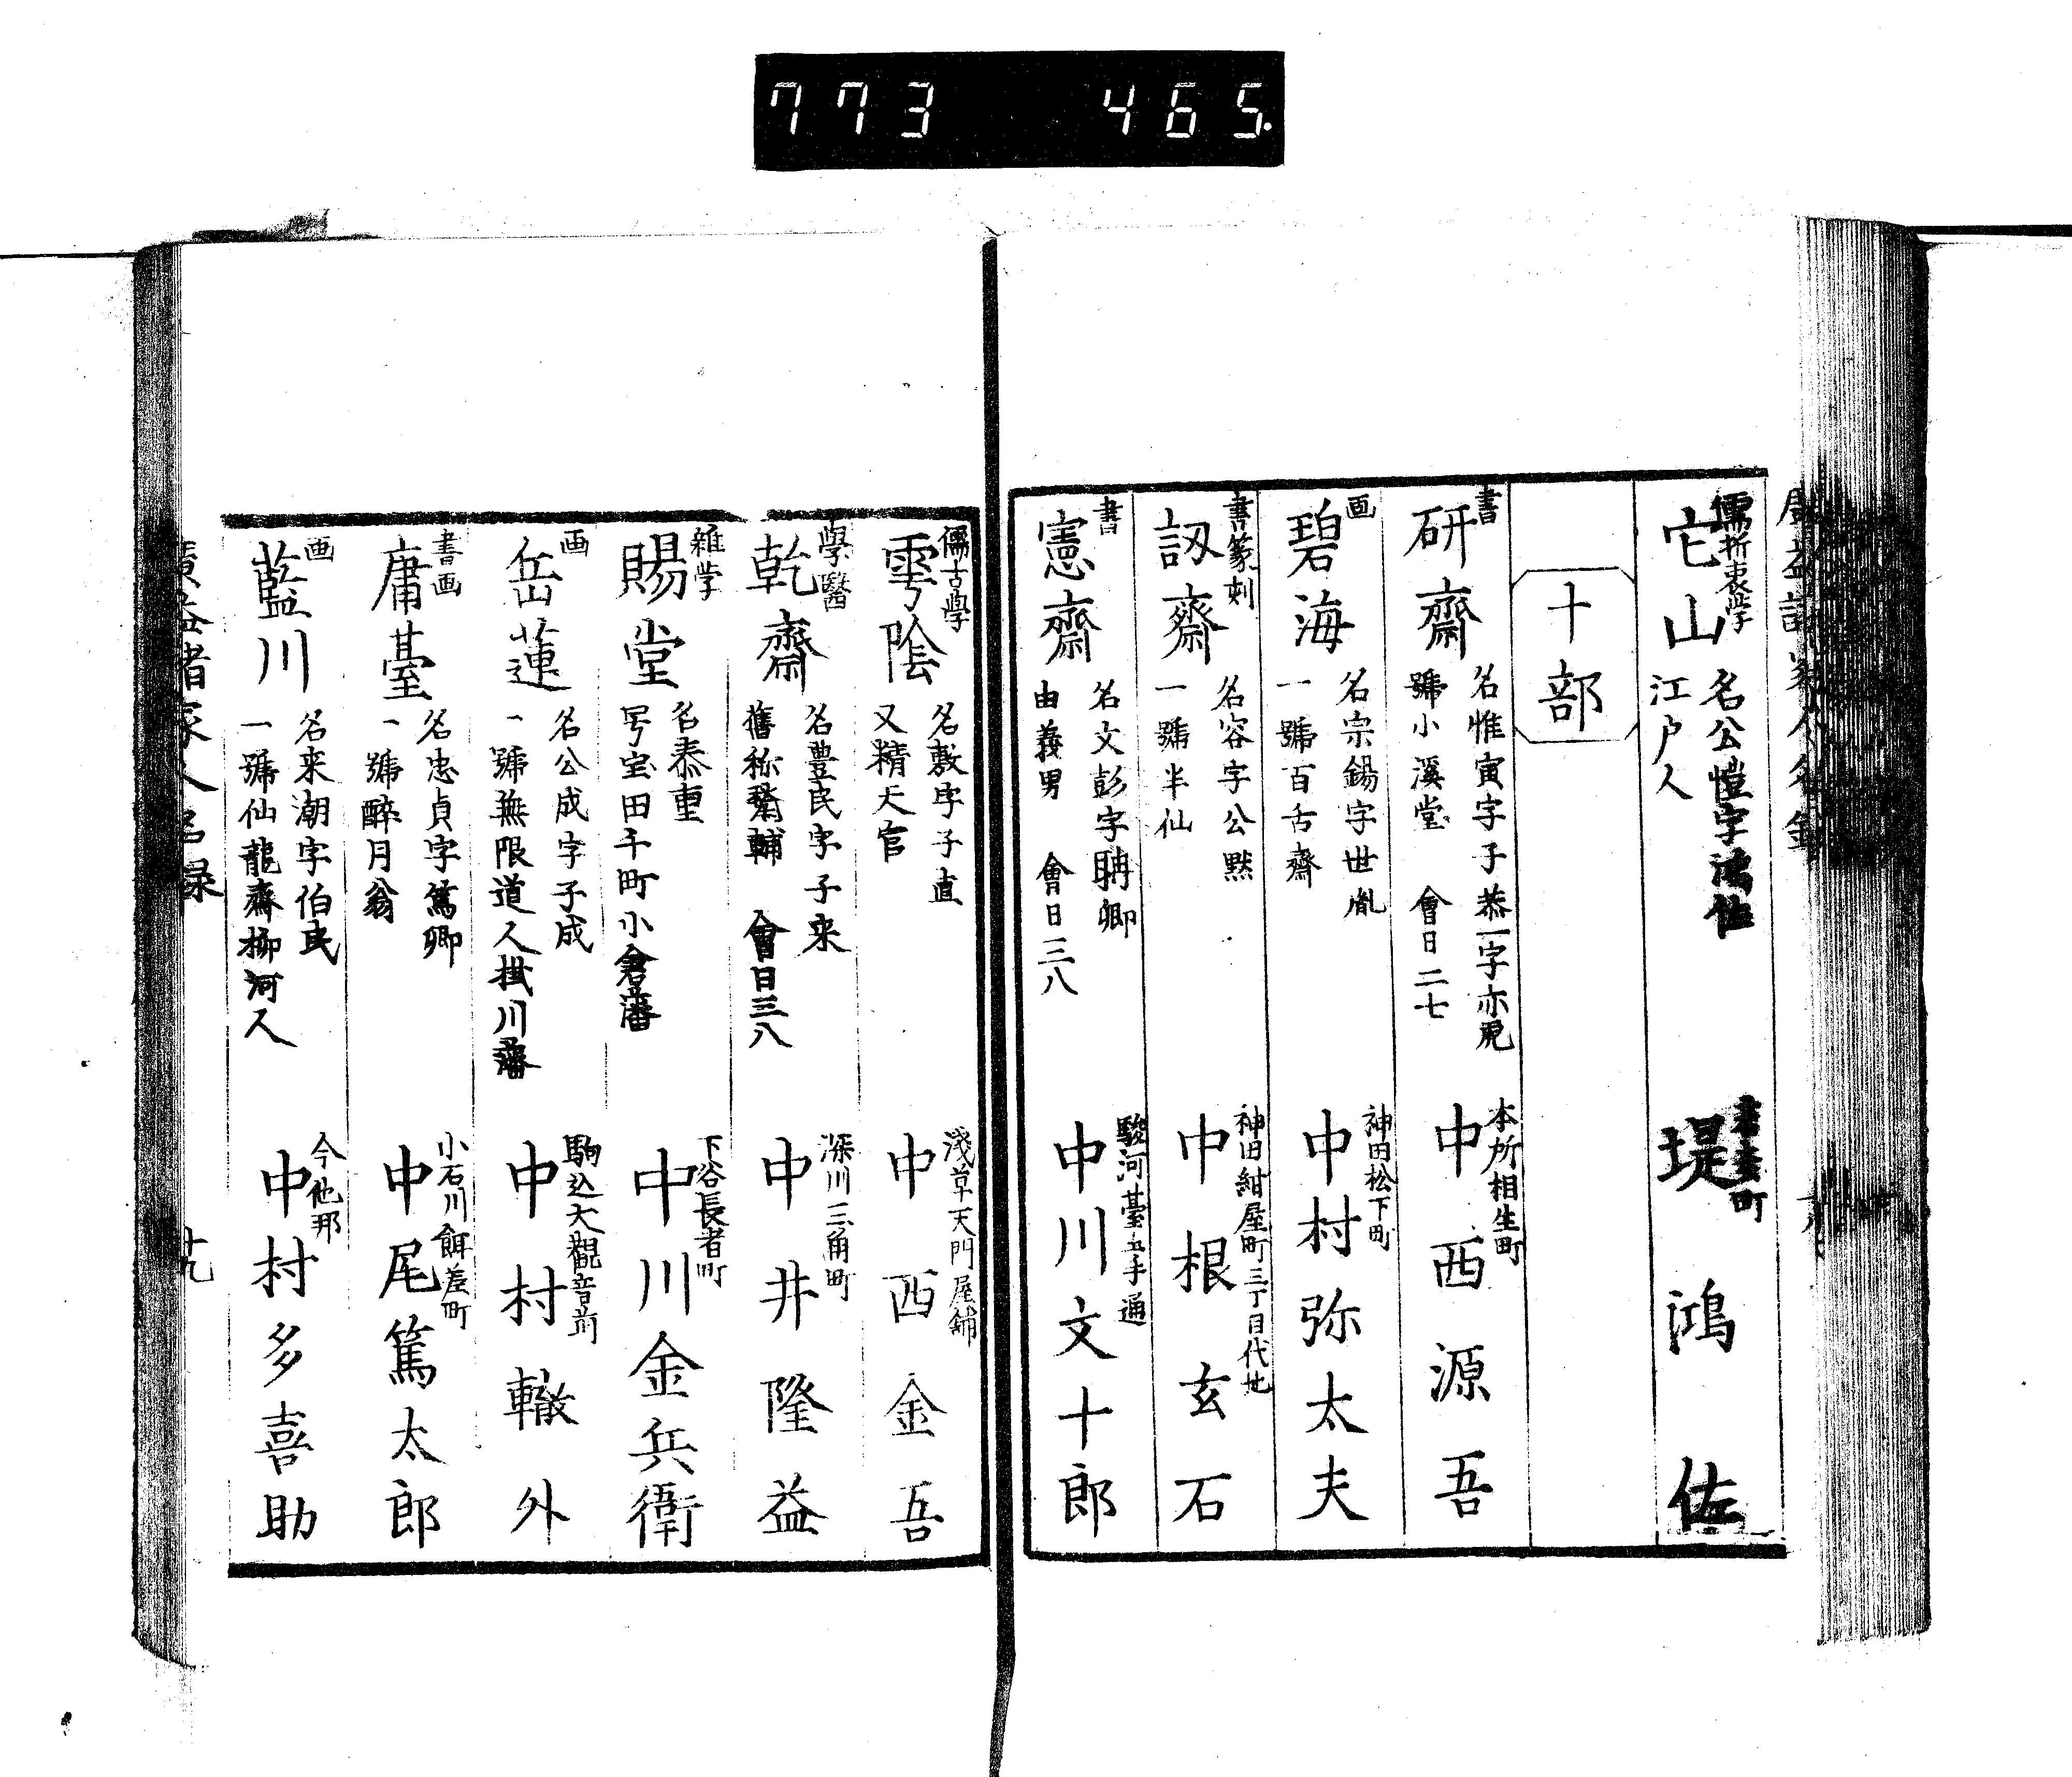 773 465
儒折衷学
它山
名公愷字鴻佐
江戸人
堤鴻佐
十部
書
研齋
名惟寅字子恭一字亦
號小溪堂 會日二七
本所相生町
中西源吾
画
碧海
名宗錫字世胤
一號百舌齋
神田松下町
中村弥太夫
書篆刻
訒齋
名容字公黙
一號半仙
神田紺屋町三丁目代地
中根玄石
書
憲齋
名文彭字聃卿
由義男 會日三八
駿河臺
中川文十郎
儒古學
雩陰
名敷字子直
又精天官
淺草天門屋舗
中西金吾
學醫
乾齋
名豊民字子来
舊称 輔 會日三八
深川三角町
中井隆益
雑学
賜堂
名泰重
号宝田千町小倉藩
下谷長者町
中川金兵衛
画
岳蓮
名公成字子成
一號無限道人掛川藩
駒込大觀音前
中村轍外
書画
庸臺
名忠貞字篤卿
一號醉月翁
小石川餌差町
中尾篤太郎
画
藍川
名来潮字伯民
一號仙龍齋柳河人
今他邦
中村多喜助
廣益諸家人名録
廿九